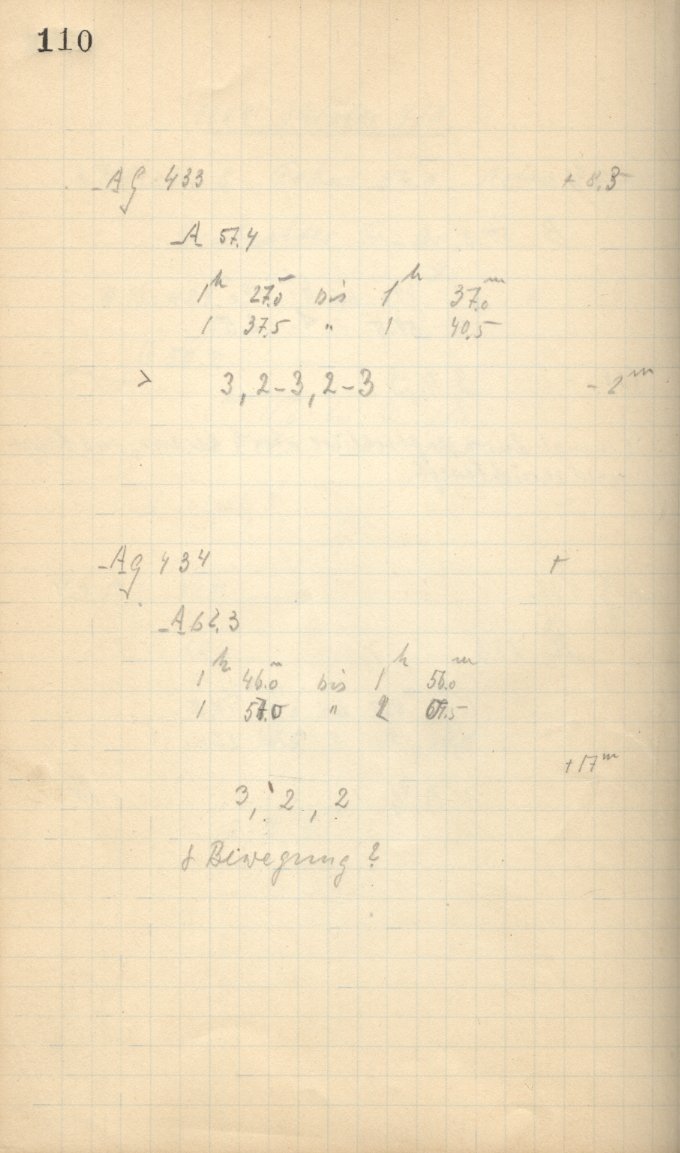 110
AG 433 + 8,5
A 57.4
1h 27.0m bis 1h 37.0m
1 37.5 " 1 40.5
> 3, 2-3, 2-3 - 2m
Ag 434 +
A 62.3
1h 46.0m bis 1h 56.0m
1 57.0 " 2 01.5
+17m
3, 2, 2
Bewegung?